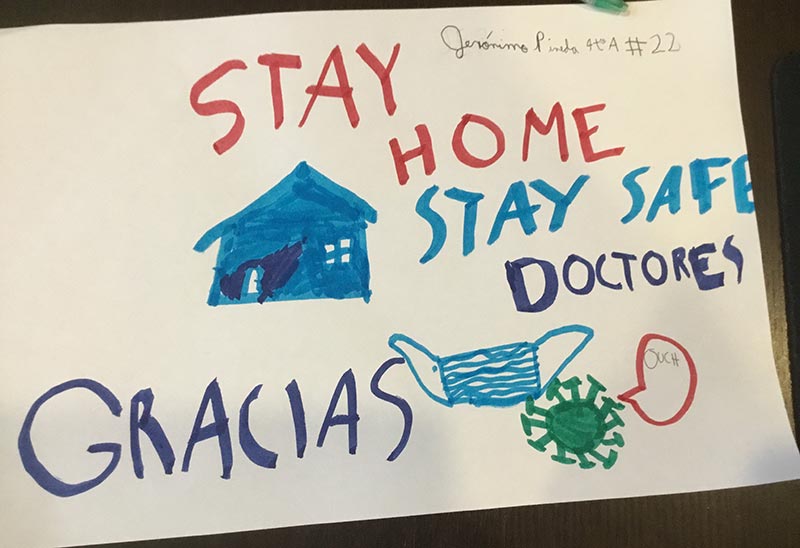 Jerónimo Pineda 4to A #22
STAY
HOME
STAY SAFE
DOCTORES
OUCH
GRACIAS